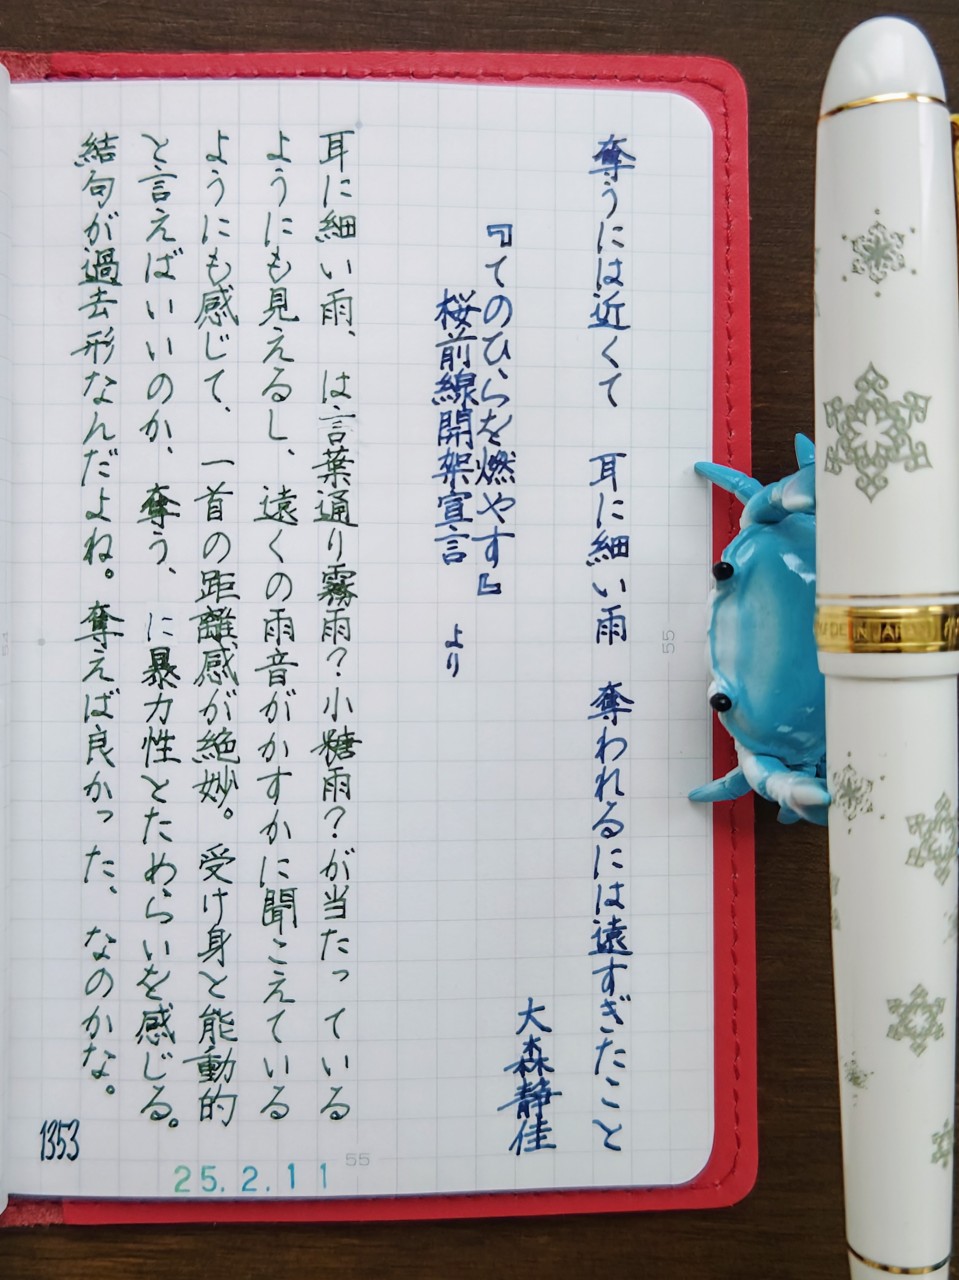 奪うには近くて 耳に細い雨 奪われるには遠すぎたこと
大森静佳
『てのひらを燃やす』
桜前線開架宣言 より
耳に細い雨、は言葉通り霧雨?小糖雨?が当たっている
ようにも見えるし、遠くの雨音がかすかに聞こえている
ようにも感じて、一首の距離感が絶妙。受け身と能動的
と言えばいいのか、奪う、に暴力性とためらいを感じる。
結句が過去形なんだよね。奪えば良かった、なのかな。
1353
25.2.11
55
55